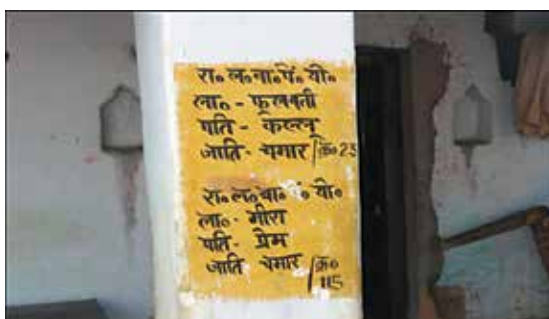 रा० ल० बा० पें० यो०
ला० - फूलवती
पति - कल्लू
जाति - चमार / क्र० 23
रा० ल० बा० पें० यो०
ला० - मीरा
पति - प्रेम
जाति चमार / क्र०
115